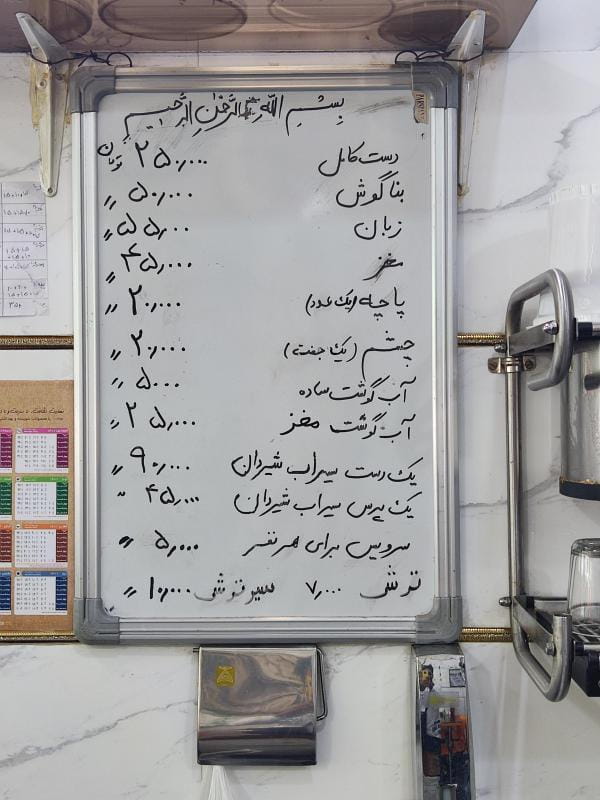 بسم الله الرحمن الرحیم
دست کامل ۲۵۰,۰۰۰ تومان
بناگوش ۵۰,۰۰۰〃
زبان ۵۵,۰۰۰〃
مغز ۴۵,۰۰۰〃
پاچه (یک عدد) ۲۰,۰۰۰〃
چشم (یک جفت) ۲۰,۰۰۰〃
آب گوشت ساده ۵۰۰۰〃
آب گوشت مغز ۲۵,۰۰۰〃
یک دست سیراب شیردان ۹۰,۰۰۰〃
یک پرس سیراب شیردان ۴۵,۰۰۰〃
سرویس برای هر نفر ۵,۰۰۰〃
ترشی ۷,۰۰۰ سیر ترشی ۱۰,۰۰۰〃